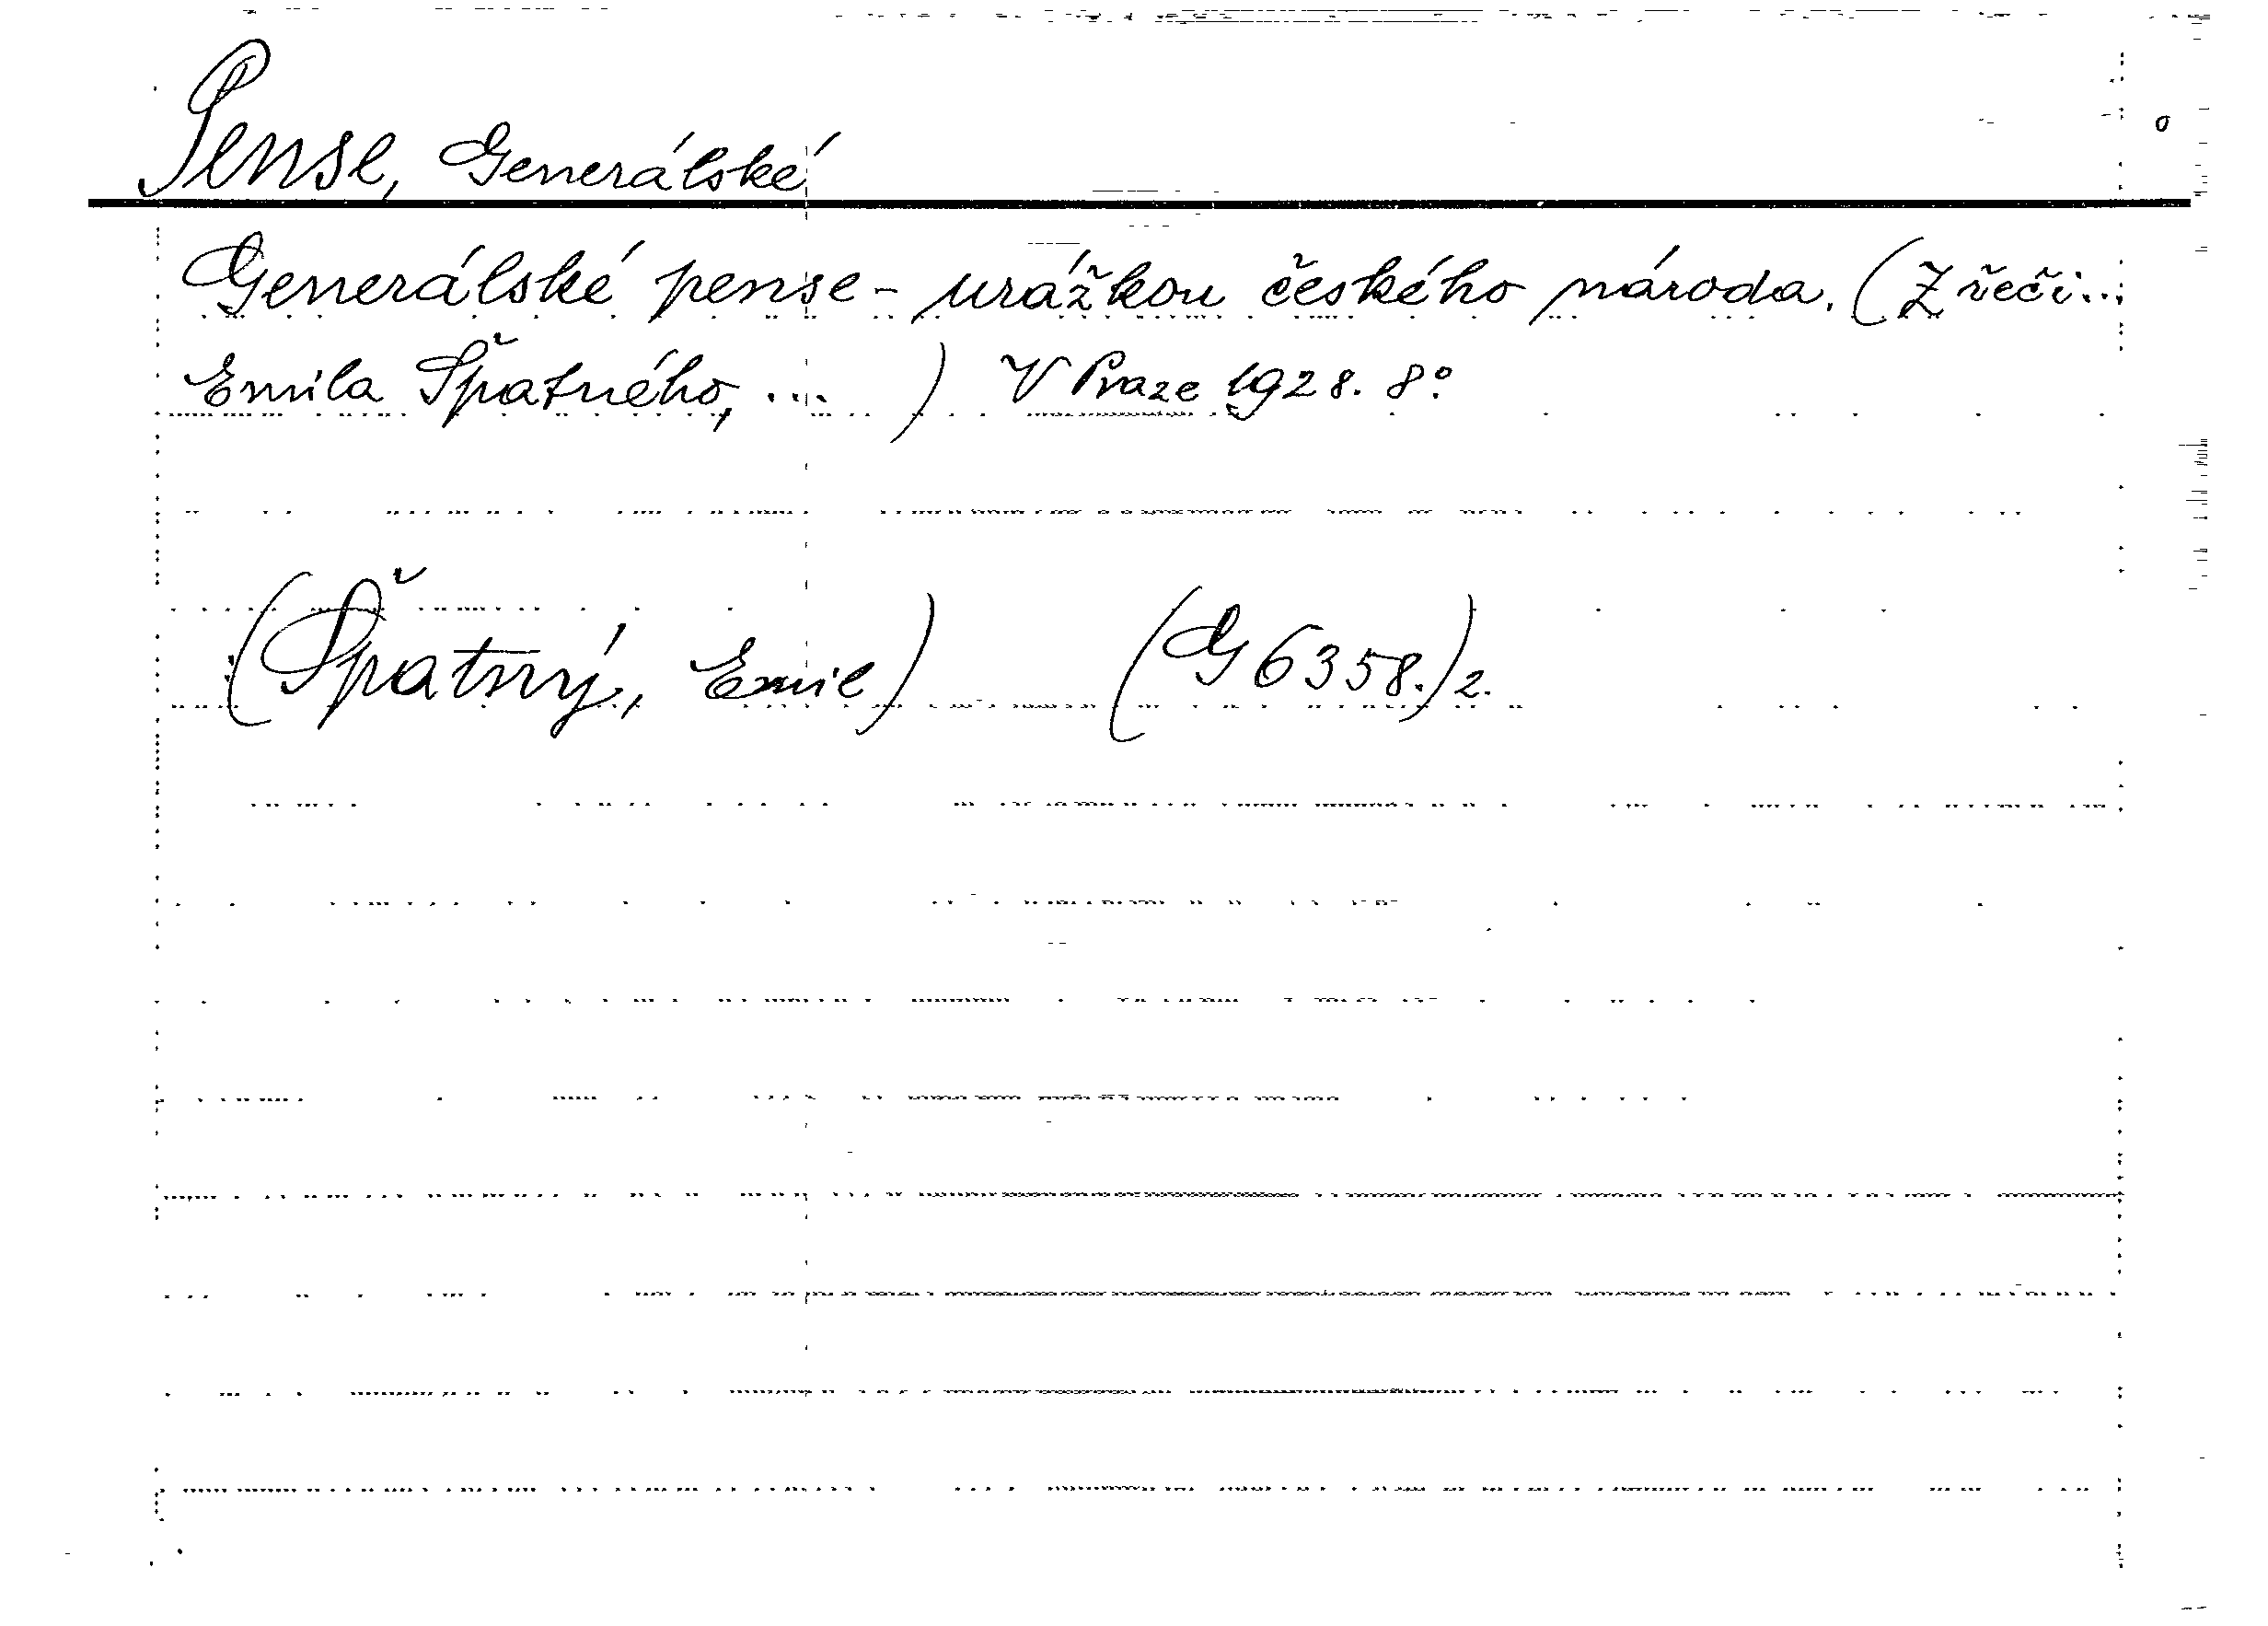 Pense, Generálské
Generálské pense - urážkou českého národa. (Z řeči...
Emila Špatného, ... ) V Praze 1928. 8°.
(Špatný, Emil) (G 6358.)2.